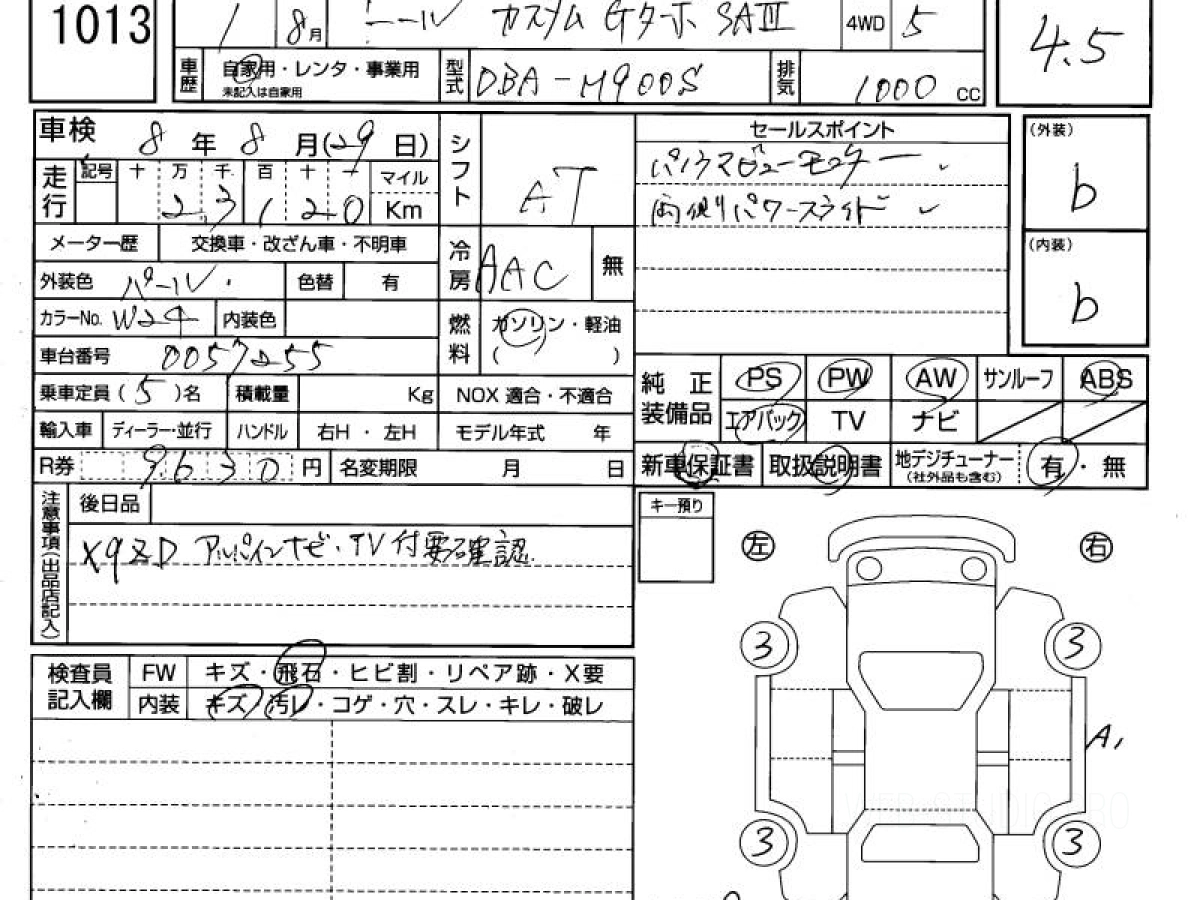 1013
1 8月 カスタム Gターボ SAⅢ 4WD 5 4.5
車歴 自家用・レンタ・事業用 未記入は自家用 型式 DBA-M900S 排気 1000 CC
車検 8年 8月(29日) シフト AT セールスポイント (外装) b
走行 記号 十 万 千 百 十 一 マイル Km パノラマビューモニター
23,120 両側パワースライド
メーター歴 交換車・改ざん車・不明車 冷房 AAC 無 (内装) b
外装色 パール 色替 有
カラーNo. W24 内装色 燃料 ガソリン・軽油 ( )
車台番号 0057255
乗車定員(5)名 積載量 Kg NOX 適合・不適合 純正装備品 PS PW AW サンルーフ ABS
輸入車 ディーラー・並行 ハンドル 右H・左H モデル年式 年 エアバック TV ナビ
R券 9630円 名変期限 月 日 新車保証書 取扱説明書 地デジチューナー (社外品も含む) 有・無
注意事項(出品店記入) 後日品 キー預り
X9ZD アルパインナビ・TV付要確認
左 右
3 3
検査員記入欄 FW キズ・飛石・ヒビ割・リペア跡・X要
内装 キズ・汚レ・コゲ・穴・スレ・キレ・破レ
A1
3 3